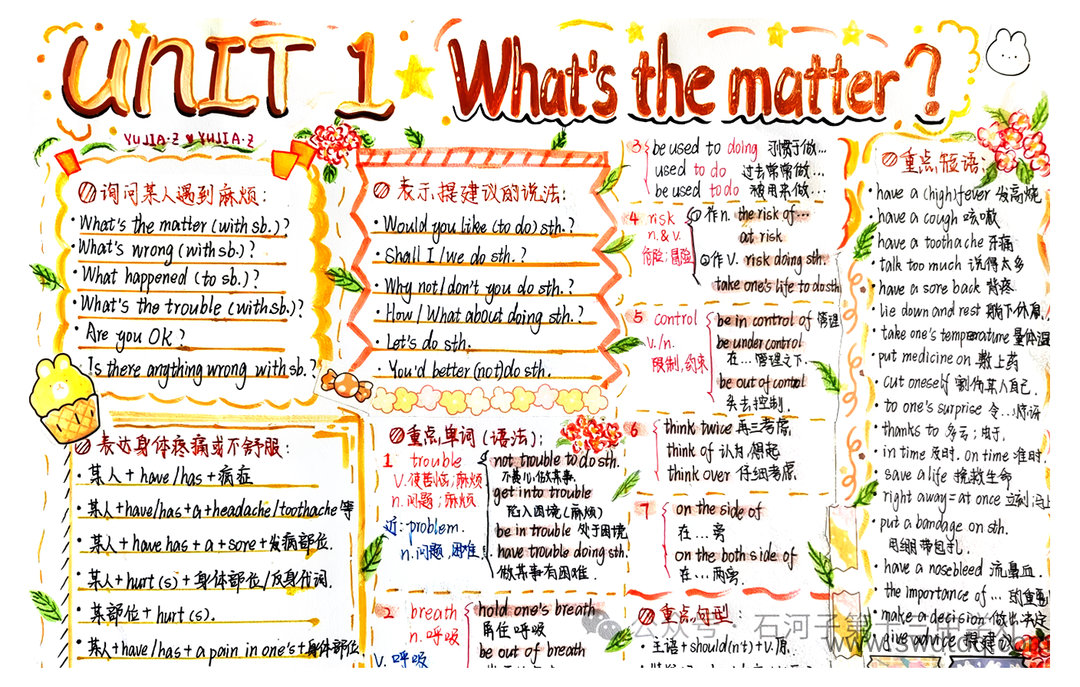 UNIT 1 What's the matter?
YUJIA·Z YUJIA·Z
询问某人遇到麻烦:
· What's the matter (with sb.)?
· What's wrong (with sb.)?
· What happened (to sb.)?
· What's the trouble (with sb.)?
· Are you OK?
· Is there angthing wrong with sb.?
表达身体疼痛或不舒服:
· 某人+have/has+病症
· 某人+have/has+a+headache/toothache等
· 某人+have has+a+sore+发病部位.
· 某人+hurt(s)+身体部位/反身代词.
· 某部位+hurt(s).
· 某人+have/has+a pain in one's+身体部位
表示提建议的说法:
· Would you like (to do) sth.?
· Shall I/we do sth.?
· Why not/don't you do sth.?
· How/What about doing sth.?
· Let's do sth.
· You'd better (not) do sth.
重点单词(语法):
1 trouble
v.使苦恼;麻烦
n.问题;麻烦
近:problem.
n.问题,困难
not trouble to do sth.
get into trouble
陷入困境(麻烦)
be in trouble 处于困境
have trouble doing sth.
做某事有困难.
2 breath
n.呼吸
v.呼吸
hold one's breath
屏住呼吸
be out of breath
3 be used to doing 习惯于做...
used to do 过去常常做...
be used to do 被用来做...
4 risk
n.&v.
危险;冒险
①作n. the risk of...
at risk
②作v. risk doing sth.
take one's life to do sth
5 control
v./n.
限制,约束
be in control of 管理
be under control
在...管理之下
be out of control
失去控制.
6 think twice 再三考虑.
think of 认为/想起
think over 仔细考虑.
7 on the side of
在...旁
on the both side of
在...两旁.
重点句型:
· 主语+should(n't)+V.原.
重点短语:
have a (high) fever 发高烧
· have a cough 咳嗽
have a toothache 牙痛
· talk too much 说得太多
· have a sore back 背疼
· lie down and rest 躺下休息.
· take one's temperature 量体温
· put medicine on 敷上药
· cut oneself 割伤某人自己.
· to one's surprise 令...惊讶
· thanks to 多亏;由于.
· in time 及时. on time 准时.
· save a life 挽救生命
· right away=at once 立刻;马上
· put a bandage on sth.
用绷带包扎.
· have a nosebleed 流鼻血.
the importance of... 的重要
· make a decision 做出决定
give advice 提建议
公众号·石河子第十二中学